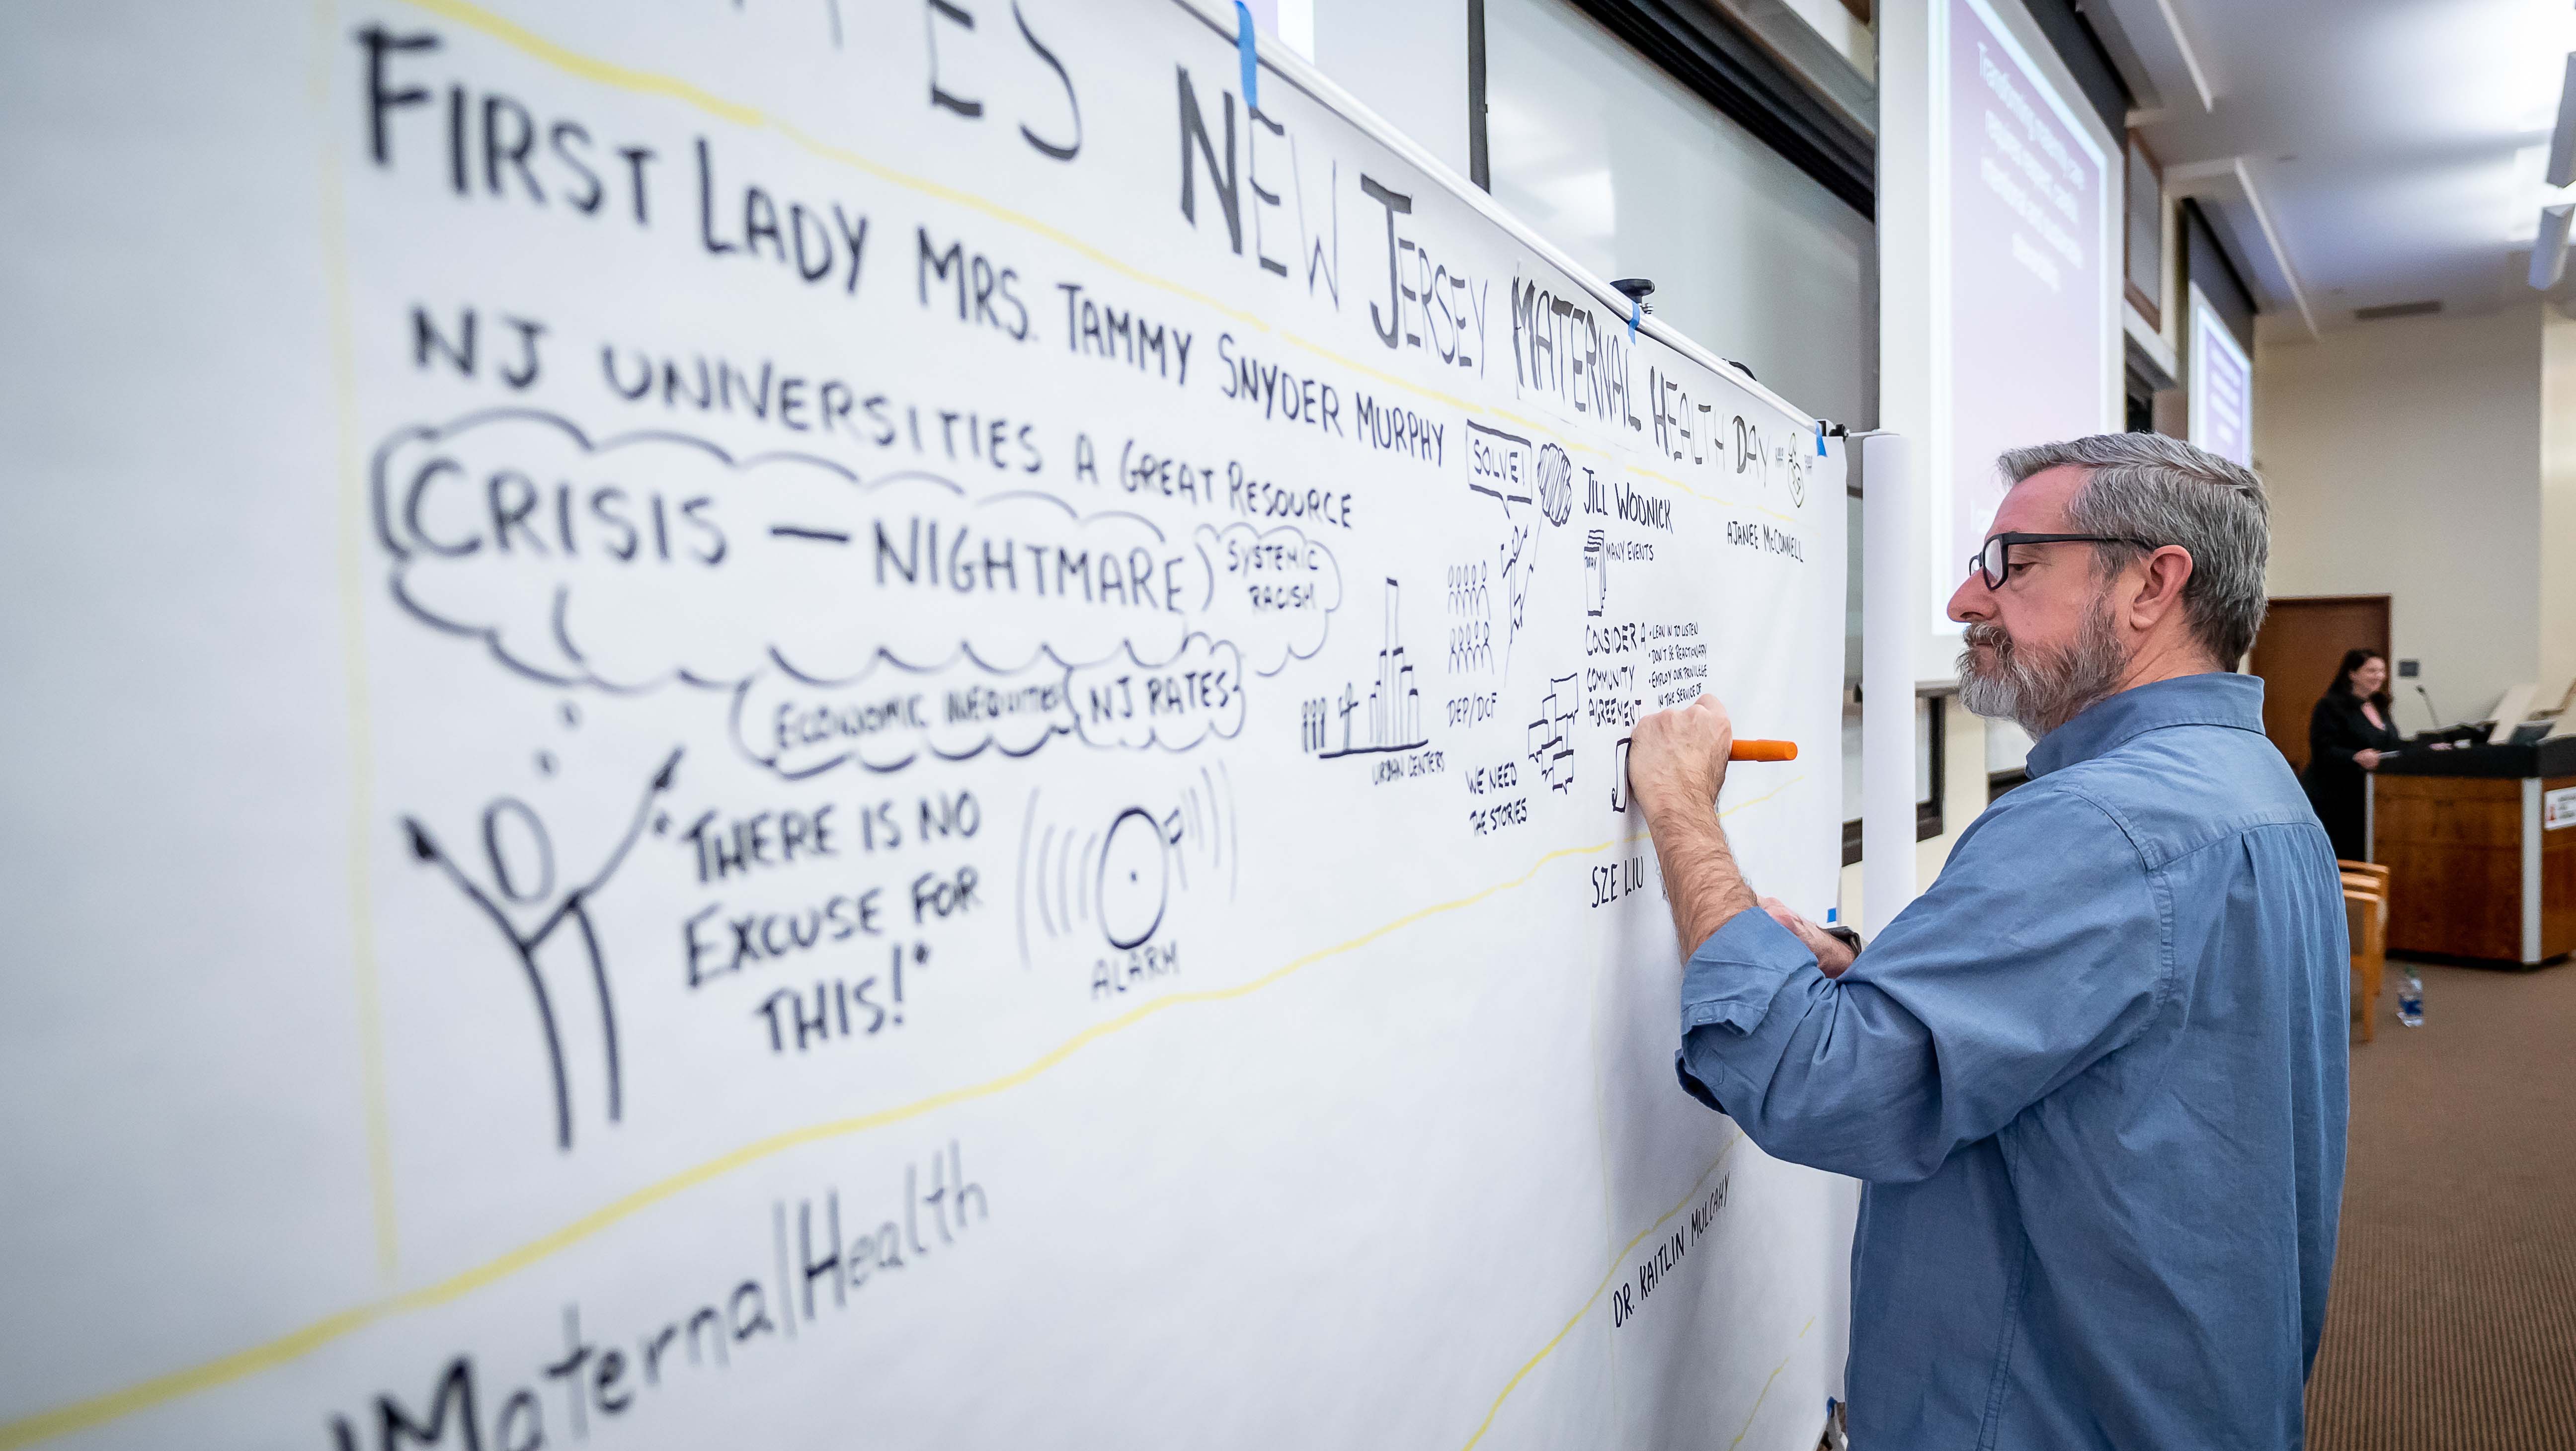 NEW JERSEY MATERNAL HEALTH DAY
FIRST LADY MRS. TAMMY SNYDER MURPHY
NJ UNIVERSITIES A GREAT RESOURCE
CRISIS — NIGHTMARE
SYSTEMIC
RACISM
ECONOMIC INEQUITIES
NJ RATES
"THERE IS NO
EXCUSE FOR
THIS!"
ALARM
SOLVE!
URBAN CENTERS
DEP/DCF
WE NEED
THE STORIES
JILL WODNICK
MANY EVENTS
CONSIDER A
COMMUNITY
AGREEMENT
• LEAN IN TO LISTEN
• DON'T BE REACTIONARY
• EMPLOY OUR PRIVILEGE
IN THE SERVICE OF
AJANEE McCONNELL
SZE LIU
DR. KAITLIN MULCAHY
MaternalHealth